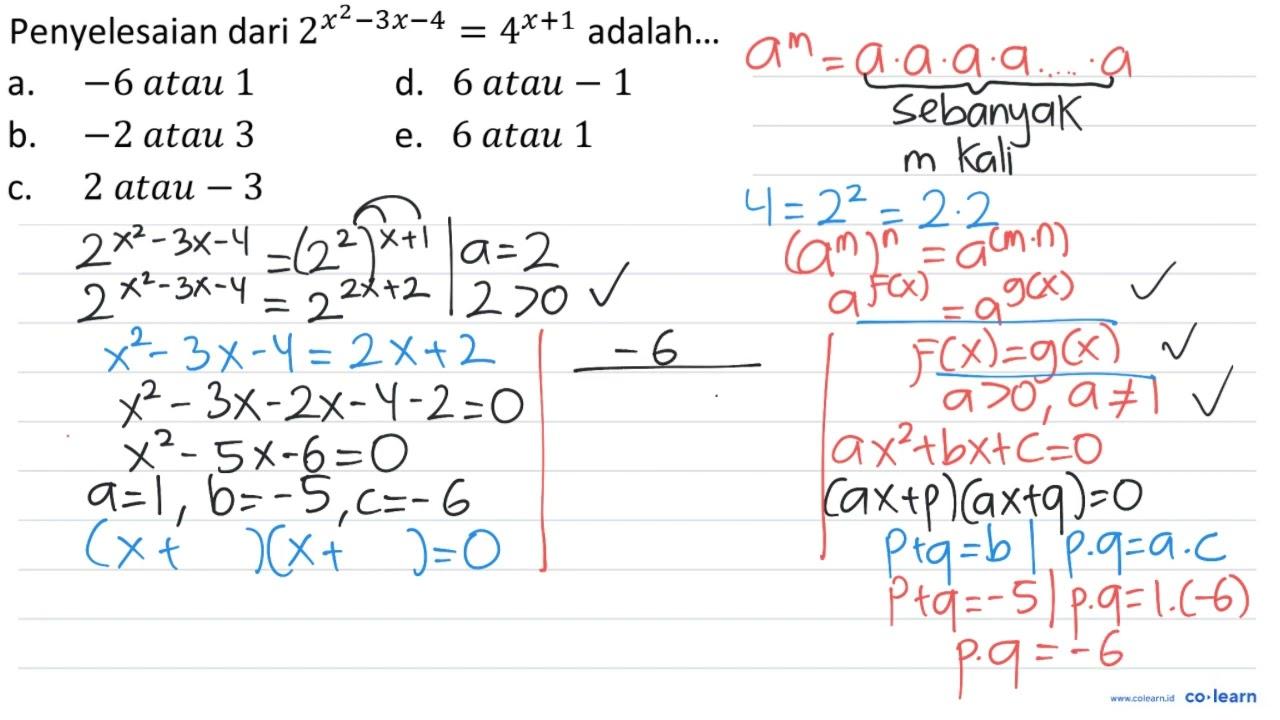 Penyelesaian dari 2^{x^2−3x−4} = 4^{x+1} adalah...
a. −6 atau 1
d. 6 atau − 1
b. −2 atau 3
e. 6 atau 1
c. 2 atau − 3
2^{x^2-3x-4} = (2^2)^{x+1} | a=2
2^{x^2-3x-4} = 2^{2x+2} | 2>0 ✓
x^2-3x-4=2x+2
x^2-3x-2x-4-2=0
x^2-5x-6=0
a=1, b=-5, c=-6
(x+ )(x+ )=0
-6
a^m = a·a·a·a.....·a
Sebanyak
m kali
4=2^2=2·2
(a^m)^n = a^{(m·n)}
a^{F(x)} = a^{g(x)} ✓
F(x)=g(x) ✓
a>0, a≠1 ✓
ax^2+bx+c=0
(ax+p)(ax+q)=0
p+q=b | p.q=a.c
p+q=-5 | p.q=1.(-6)
p.q=-6
www.colearn.id co·learn